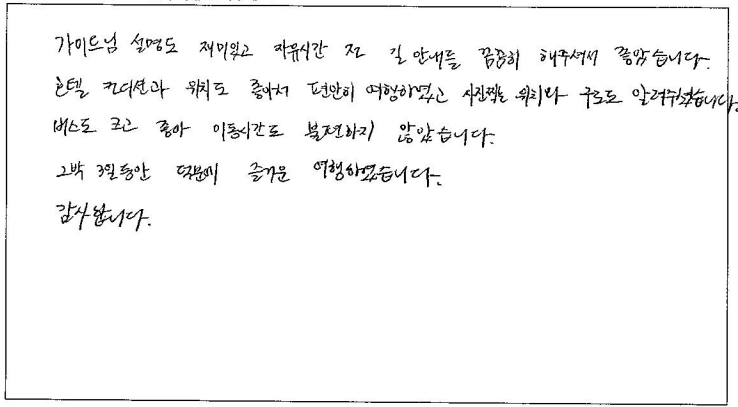 가이드님 설명도 재미있고 자유시간 전 길 안내를 꼼꼼히 해주셔서 좋았습니다.
호텔 컨디션과 위치도 좋아서 편안히 여행하였고 사진찍는 위치와 구도도 알려주셨습니다.
버스도 크고 좋아 이동시간도 불편하지 않았습니다.
2박 3일동안 덕분에 즐거운 여행하였습니다.
감사합니다.